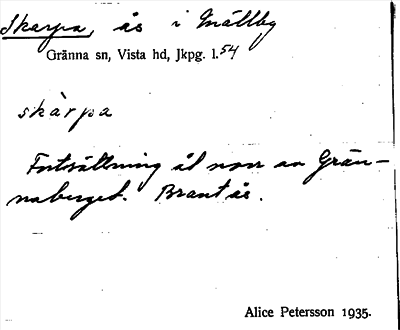 Skarpa, ås i Mällby
Gränna sn, Vista hd, Jkpg. l. 54
skàrpa
Fortsättning åt norr av Grän-
naberget. Brant ås.
Alice Petersson 1935.